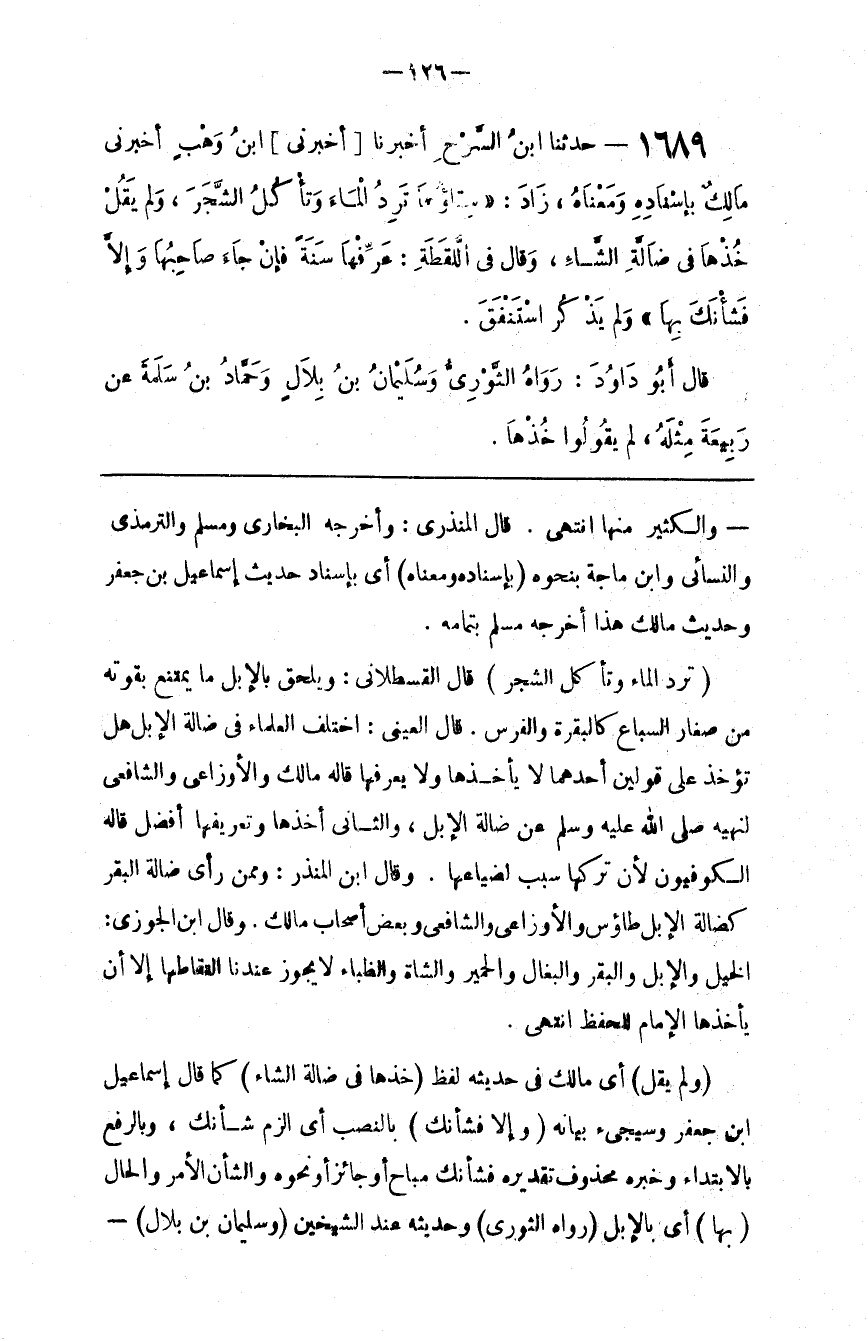 —١٢٦—
١٦٨٩ — حدثنا ابنُ السَّرْحِ أخبرنا [ أخبرنى ] ابنُ وَهْبٍ أخبرنى
مَالِكٌ بإسْنَادِهِ وَمَعْنَاهُ ، زَادَ : « سِقاؤُها تَرِدُ الْمَاءَ وَتَأْ كُلُ الشَّجَرَ ، وَلم يَقُلْ
خُذْهَا فى ضَالَّةِ الشَّاءِ ، وَقال فى اللُّقَطَةِ : عَرِّفْهَا سَنَةً فإنْ جَاءَ صَاحِبُهَا وَ إلاَّ
فَشَأْنَكَ بِهَا » وَلم يَذْ كُر اسْتَنْفَقَ .
قال أَبُو دَاوُدَ : رَوَاهُ الثَّوْرِىُّ وَسُلَيْمَانُ بنُ بِلاَلٍ وَحَمَّادُ بنُ سَلَمَةَ عن
رَبِيعَةَ مِثْلَهُ ، لم يقُولُوا خُذْهَا .
— والكثير منها انتهى . قال المنذرى : وأخرجه البخارى ومسلم والترمذى
والنسائى وابن ماجة بنحوه (بإسناده ومعناه) أى بإسناد حديث إسماعيل بن جعفر
وحديث مالك هذا أخرجه مسلم بتمامه .
( ترد الماء وتأ كل الشجر ) قال القسطلانى : ويلحق بالإبل ما يمتنع بقوته
من صغار السباع كالبقرة والفرس . قال العينى : اختلف العلماء فى ضالة الإبل هل
تؤخذ على قولين أحدهما لا يأخذها ولا يعرفها قاله مالك والأوزاعى والشافعى
لنهيه صلى الله عليه وسلم عن ضالة الإبل ، والثانى أخذها وتعريفها أفضل قاله
الكوفيون لأن تركها سبب لضياعها . وقال ابن المنذر : وممن رأى ضالة البقر
كضالة الإبل طاؤس والأوزاعى والشافعى وبعض أصحاب مالك . وقال ابن الجوزى :
الخيل والإبل والبقر والبغال والحمير والشاة والظباء لا يجوز عندنا التقاطها إلا أن
يأخذها الإمام للحفظ انتهى .
(ولم يقل) أى مالك فى حديثه لفظ (خذها فى ضالة الشاء) كما قال إسماعيل
ابن جعفر وسيجىء بيانه ( وإلا فشأنك ) بالنصب أى الزم شأنك ، وبالرفع
بالابتداء وخبره محذوف تقديره فشأنك مباح أو جائز أو نحوه والشأن الأمر والحال
( بها ) أى بالإبل (رواه الثورى) وحديثه عند الشيخين (وسليمان بن بلال) —